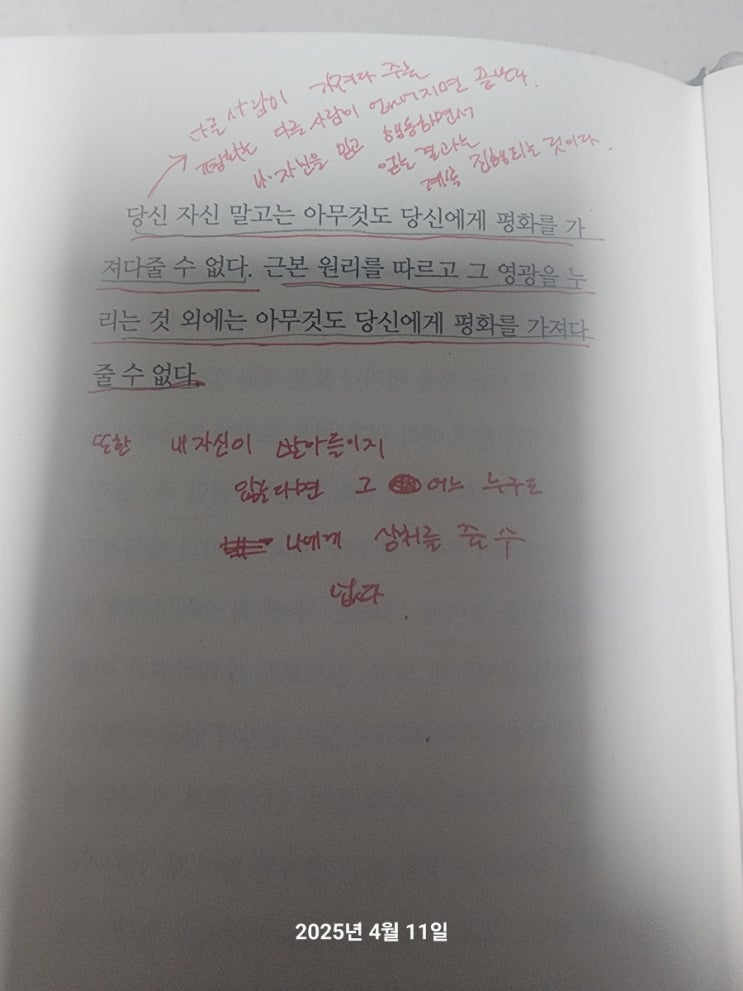 다른 사람이 가져다 주는
평화는 다른 사람이 없어지면 끝난다.
내 자신을 믿고 행동하면서
얻는 결과는
계속 진행되는 것이다.
당신 자신 말고는 아무것도 당신에게 평화를 가
져다줄 수 없다. 근본 원리를 따르고 그 영광을 누
리는 것 외에는 아무것도 당신에게 평화를 가져다
줄 수 없다.
또한 내 자신이 받아들이지
않는다면 그 어느 누구도
나에게 상처를 줄 수
없다.
2025년 4월 11일